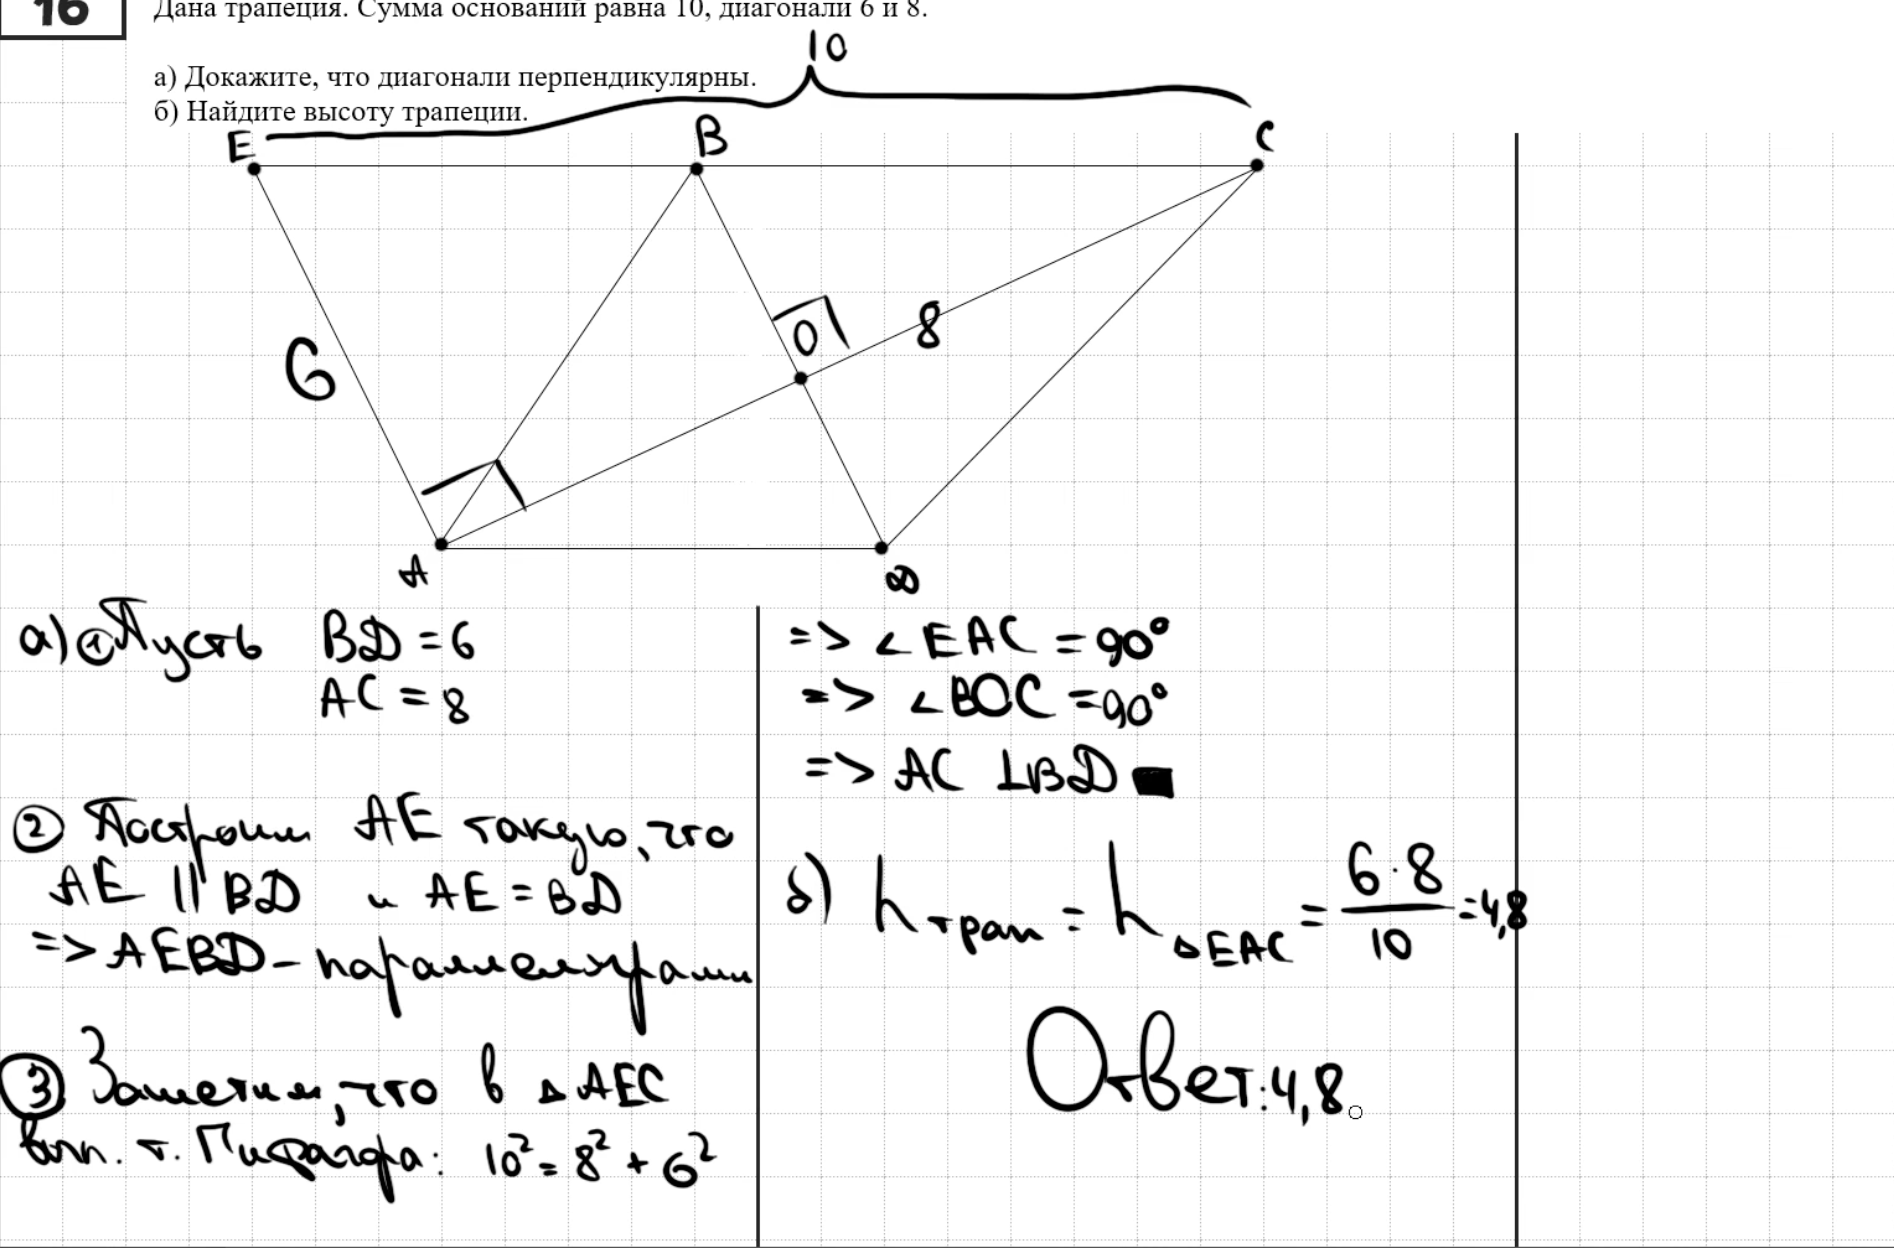 16
Дана трапеция. Сумма оснований равна 10, диагонали 6 и 8.
а) Докажите, что диагонали перпендикулярны.
б) Найдите высоту трапеции.
10
E
B
C
6
O
8
A
D
а) ① Пусть BD = 6
AC = 8
② Построим AE такую, что
AE || BD и AE = BD
=> AEBD – параллелограмм
③ Заметим, что в △AEC
вып. т. Пифагора: 10² = 8² + 6²
=> ∠EAC = 90°
=> ∠BOC = 90°
=> AC ⊥ BD ■
б) h трап = h △EAC = 6·8 / 10 = 4,8
Ответ: 4,8